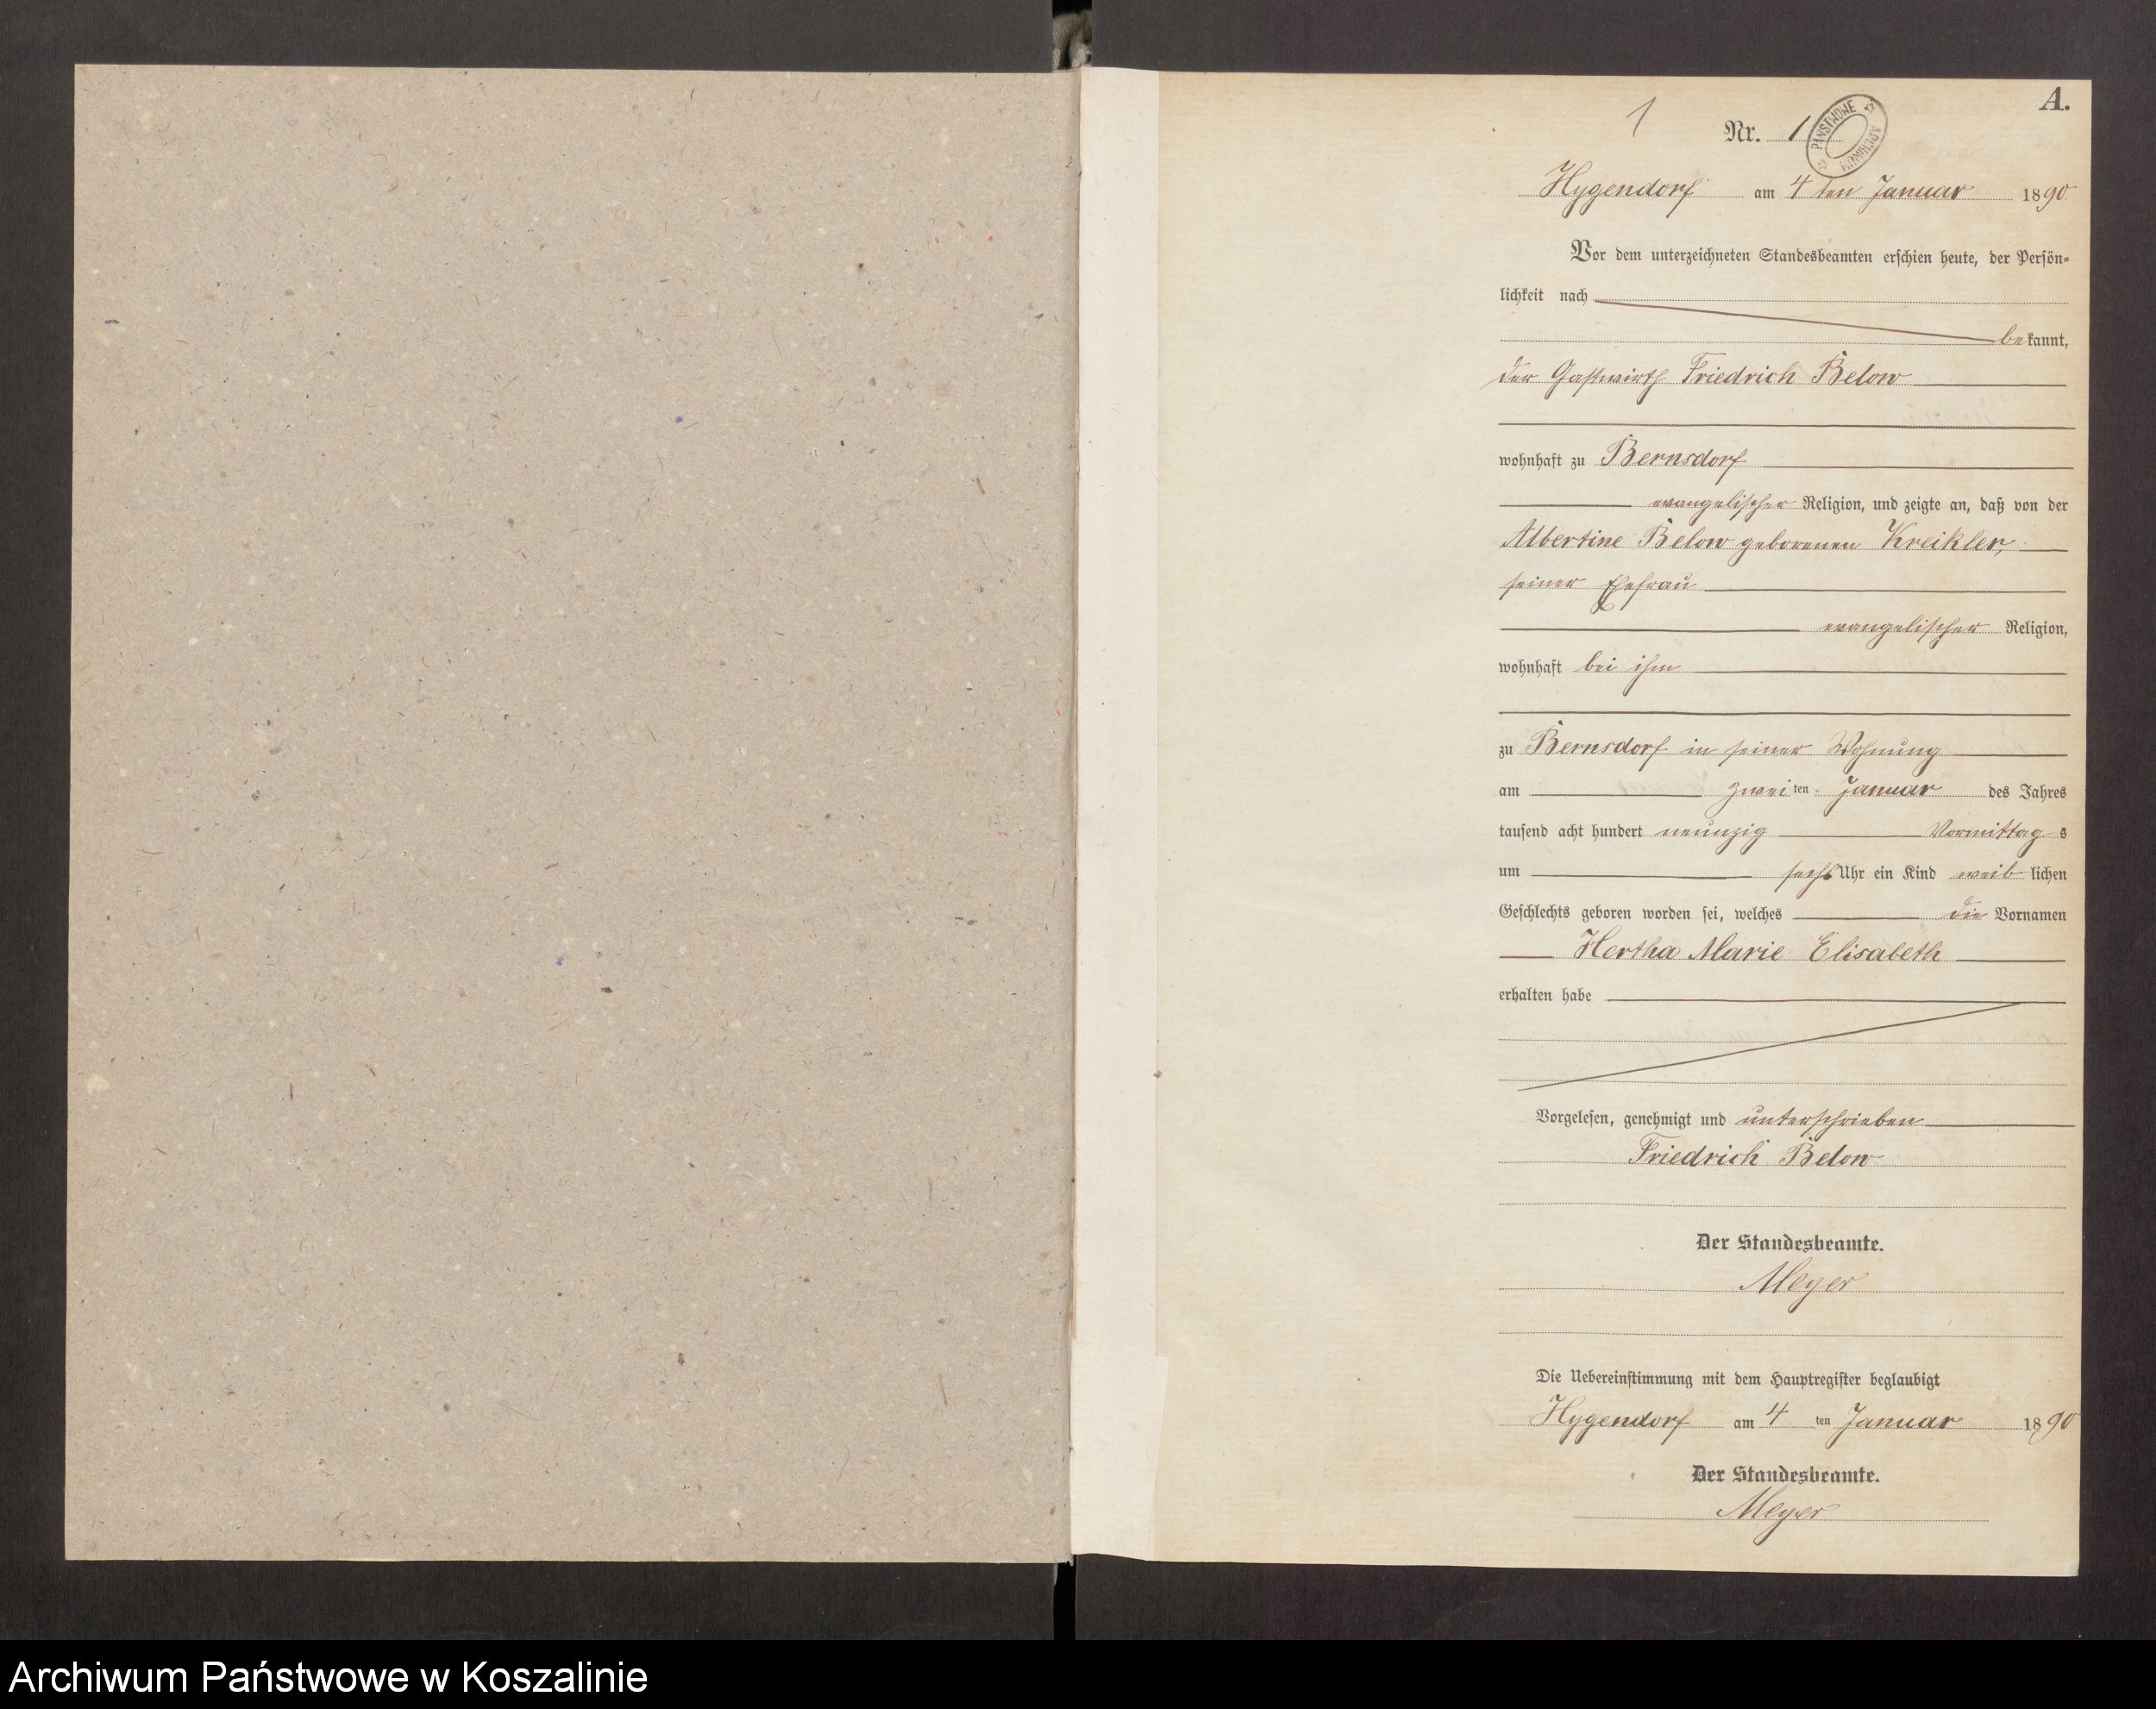 A.
1
Nr. 1
PAŃSTWOWE ARCHIWUM
Hygendorf am 4 ten Januar 1890
Vor dem unterzeichneten Standesbeamten erschien heute, der Persön-
lichkeit nach
bekannt,
der Gastwirth Friedrich Below
wohnhaft zu Bernsdorf
evangelischer Religion, und zeigte an, daß von der
Albertine Below geborenen Kreikler,
seiner Ehefrau
evangelischer Religion,
wohnhaft bei ihm
zu Bernsdorf in seiner Wohnung
am zweiten Januar des Jahres
tausend acht hundert neunzig Vormittags
um sechs Uhr ein Kind weiblichen
Geschlechts geboren worden sei, welches die Vornamen
Hertha Marie Elisabeth
erhalten habe
Vorgelesen, genehmigt und unterschrieben
Friedrich Below
Der Standesbeamte.
Meyer
Die Uebereinstimmung mit dem Hauptregister beglaubigt
Hygendorf am 4 ten Januar 1890
Der Standesbeamte.
Meyer
Archiwum Państwowe w Koszalinie